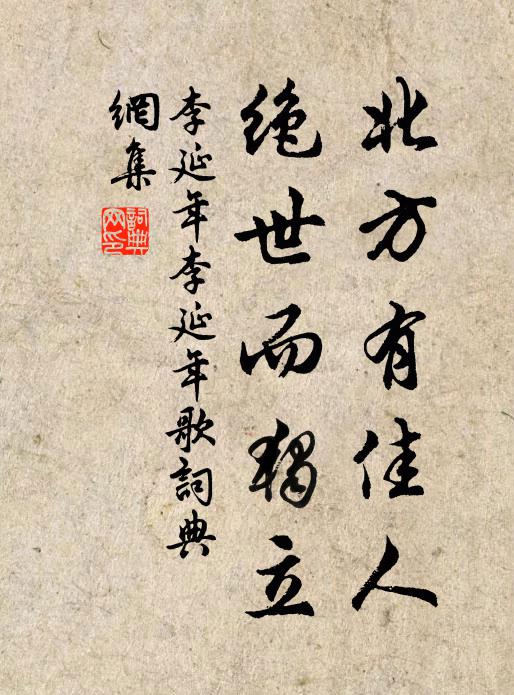 北方有佳人
絕世而獨立
李延年李延年歌詞典
網集
詞典
网印